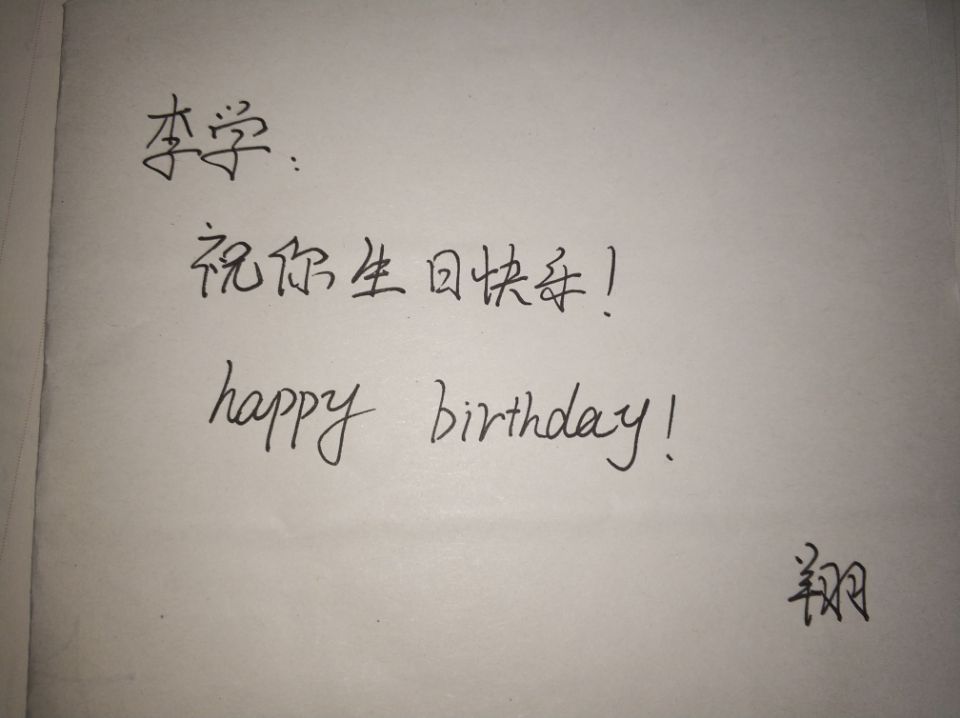 李学:
祝你生日快乐!
happy birthday!
翔